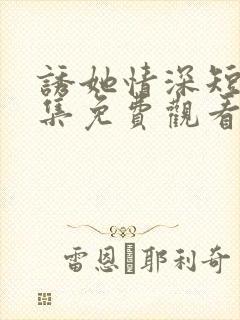 誘她情深短
集免費觀看
雷恩 耶利奇